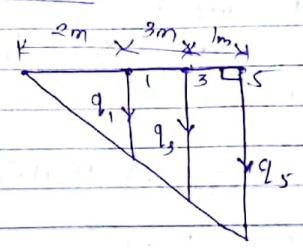 2m 3m 1m
1 3 5
q1 q3 q5